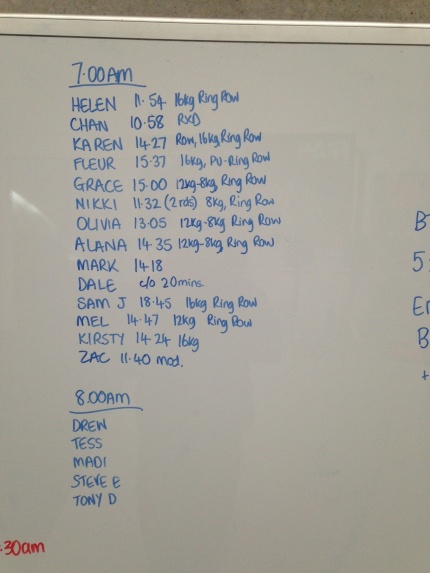 7.00AM
HELEN 11.54 16kg Ring Row
CHAN 10.58 RXD
KAREN 14.27 Row, 16kg Ring Row
FLEUR 15.37 16kg, PU-Ring Row
GRACE 15.00 12kg-8kg, Ring Row
NIKKI 11.32 (2 rds) 8kg, Ring Row
OLIVIA 13.05 12kg-8kg Ring Row
ALANA 14.35 12kg-8kg, Ring Row
MARK 14.18
DALE c/o 20mins.
SAM J 18.45 16kg Ring Row
MEL 14.47 12kg Ring Row
KIRSTY 14.24 16kg
ZAC 11.40 mod.
8.00AM
DREW
TESS
MADI
STEVE E
TONY D
.30am
B
5
Er
B
+